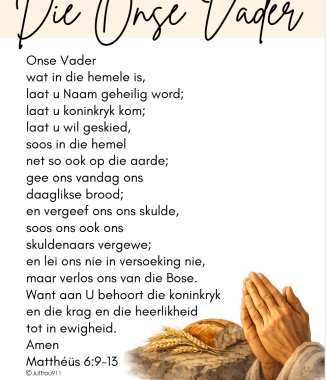 Die Onse Vader
Onse Vader
wat in die hemele is,
laat u Naam geheilig word;
laat u koninkryk kom;
laat u wil geskied,
soos in die hemel
net so ook op die aarde;
gee ons vandag ons
daaglikse brood;
en vergeef ons ons skulde,
soos ons ook ons
skuldenaars vergewe;
en lei ons nie in versoeking nie,
maar verlos ons van die Bose.
Want aan U behoort die koninkryk
en die krag en die heerlikheid
tot in ewigheid.
Amen
Matthéüs 6:9-13
©Juffrou911